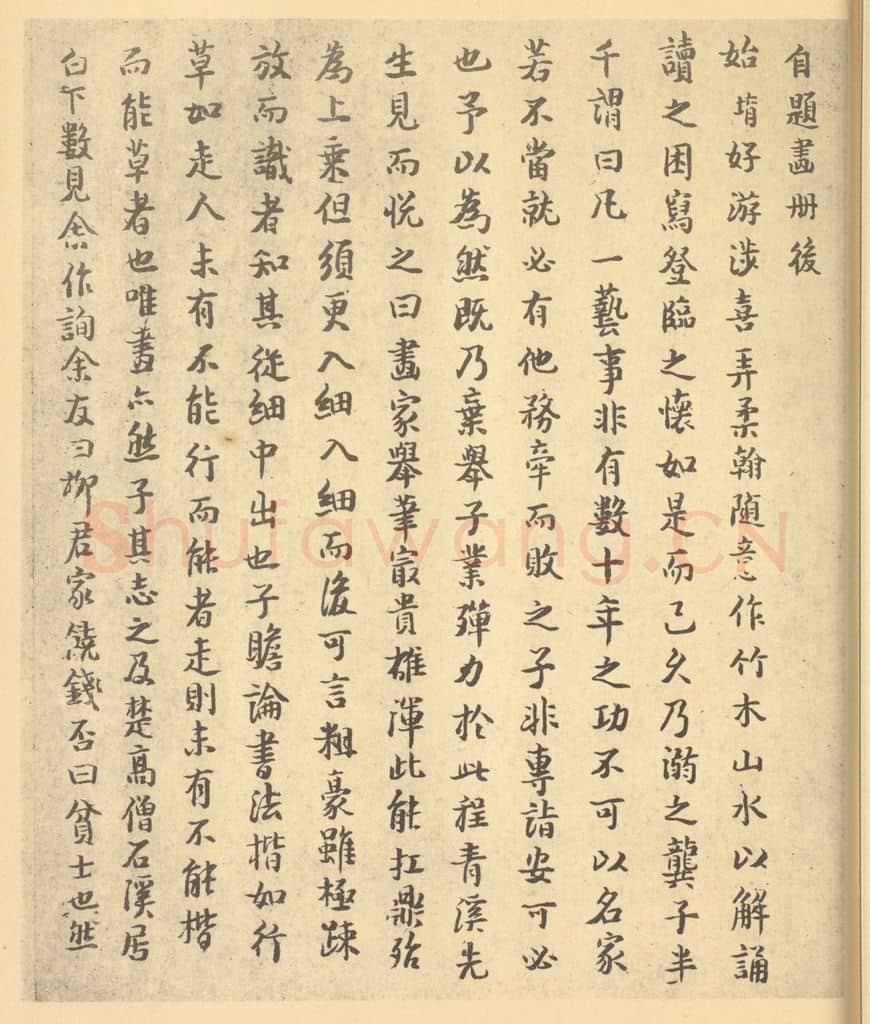 自題畫册後
始堉好游涉喜弄柔翰随意作竹木山水以解誦
讀之困寫登臨之懷如是而已久乃溺之龔子半
千謂曰凡一藝事非有數十年之功不可以名家
若不當就必有他務牽而敗之子非專詣安可必
也予以為然既乃棄舉子業殫力於此程青溪先
生見而悦之曰畫家舉筆冣貴雄渾此能扛鼎殆
為上乘但須更入細入細而後可言粗豪雖極疎
放而識者知其從細中出也子瞻論書法楷如行
草如走人未有不能行而能者走則未有不能楷
而能草者也唯畫亦然子其志之及楚高僧石溪居
白下數見余作詢余友曰柳君家饒錢否曰貧士也然
Shufawang.CN